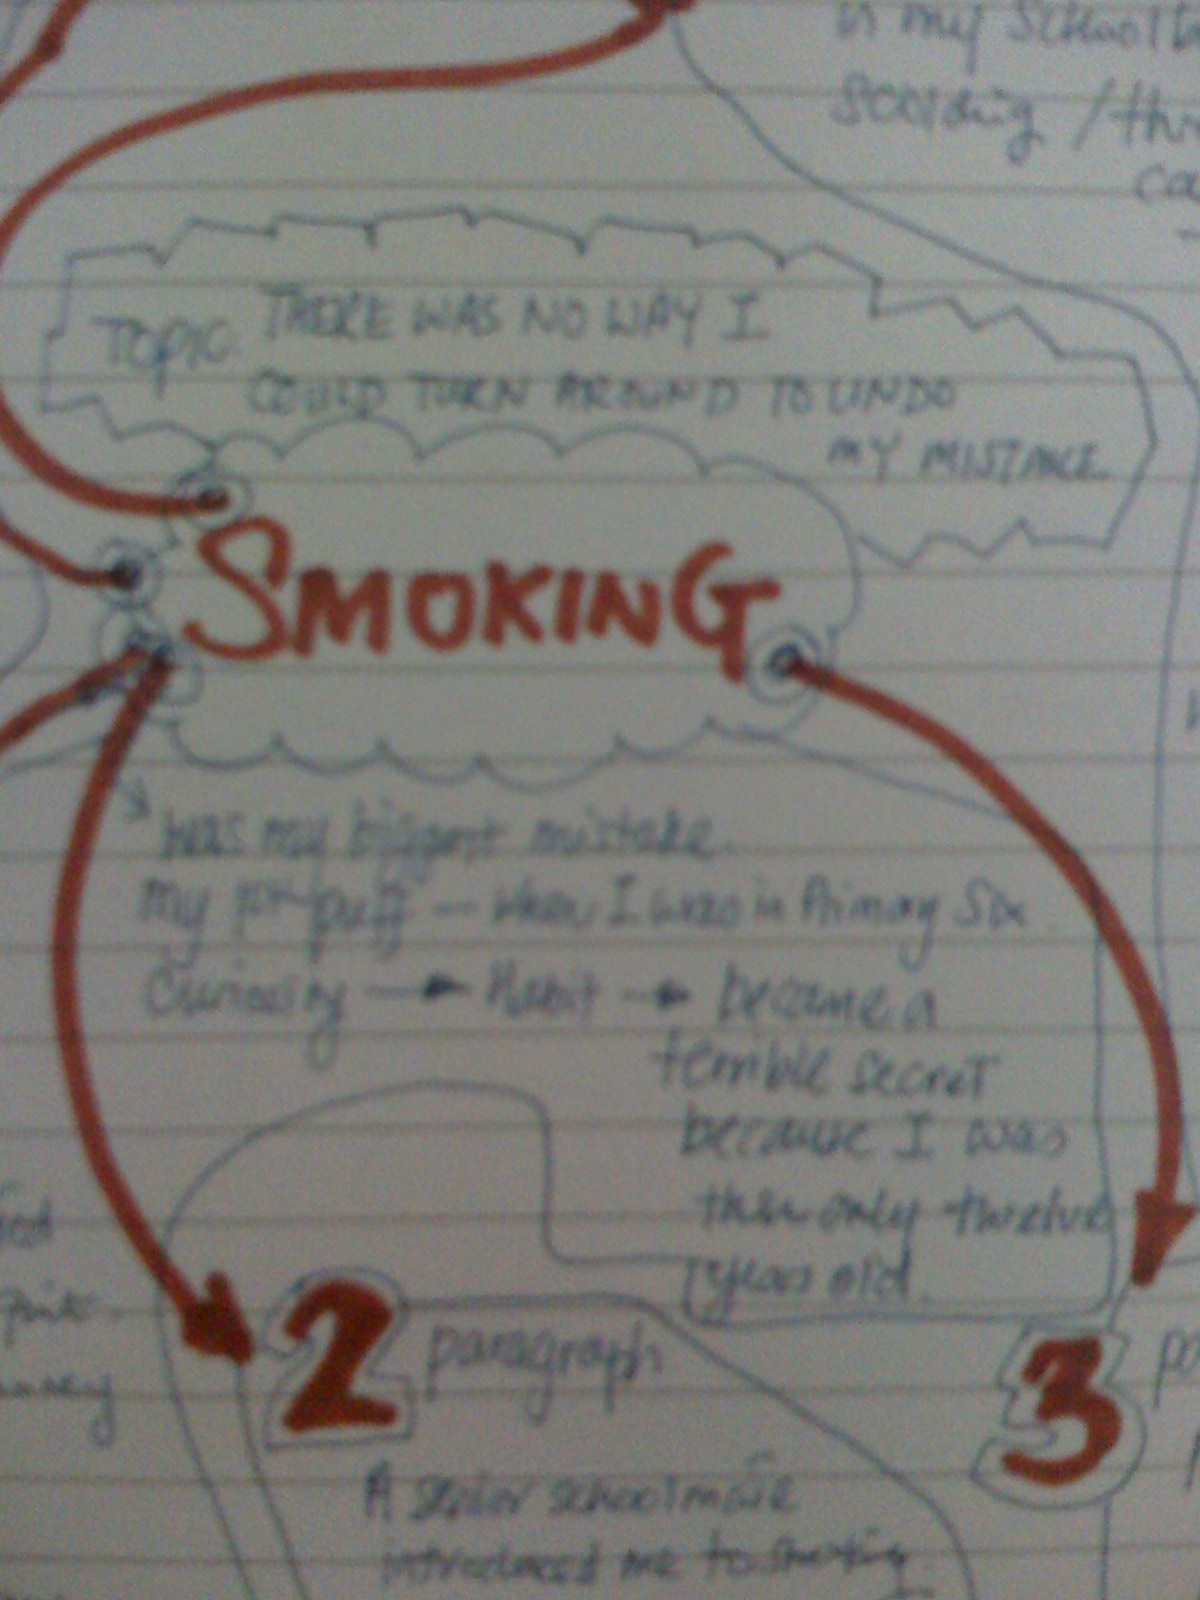 in my School
Scolding /
TOPIC: THERE WAS NO WAY I
COULD TURN AROUND TO UNDO
MY MISTAKE
SMOKING
was my biggest mistake.
My 1st puff — when I was in Primary Six.
Curiosity → Habit → became a
terrible secret
because I was
then only twelve
years old.
2 paragraph
3
A senior schoolmate
introduced me to smoking.